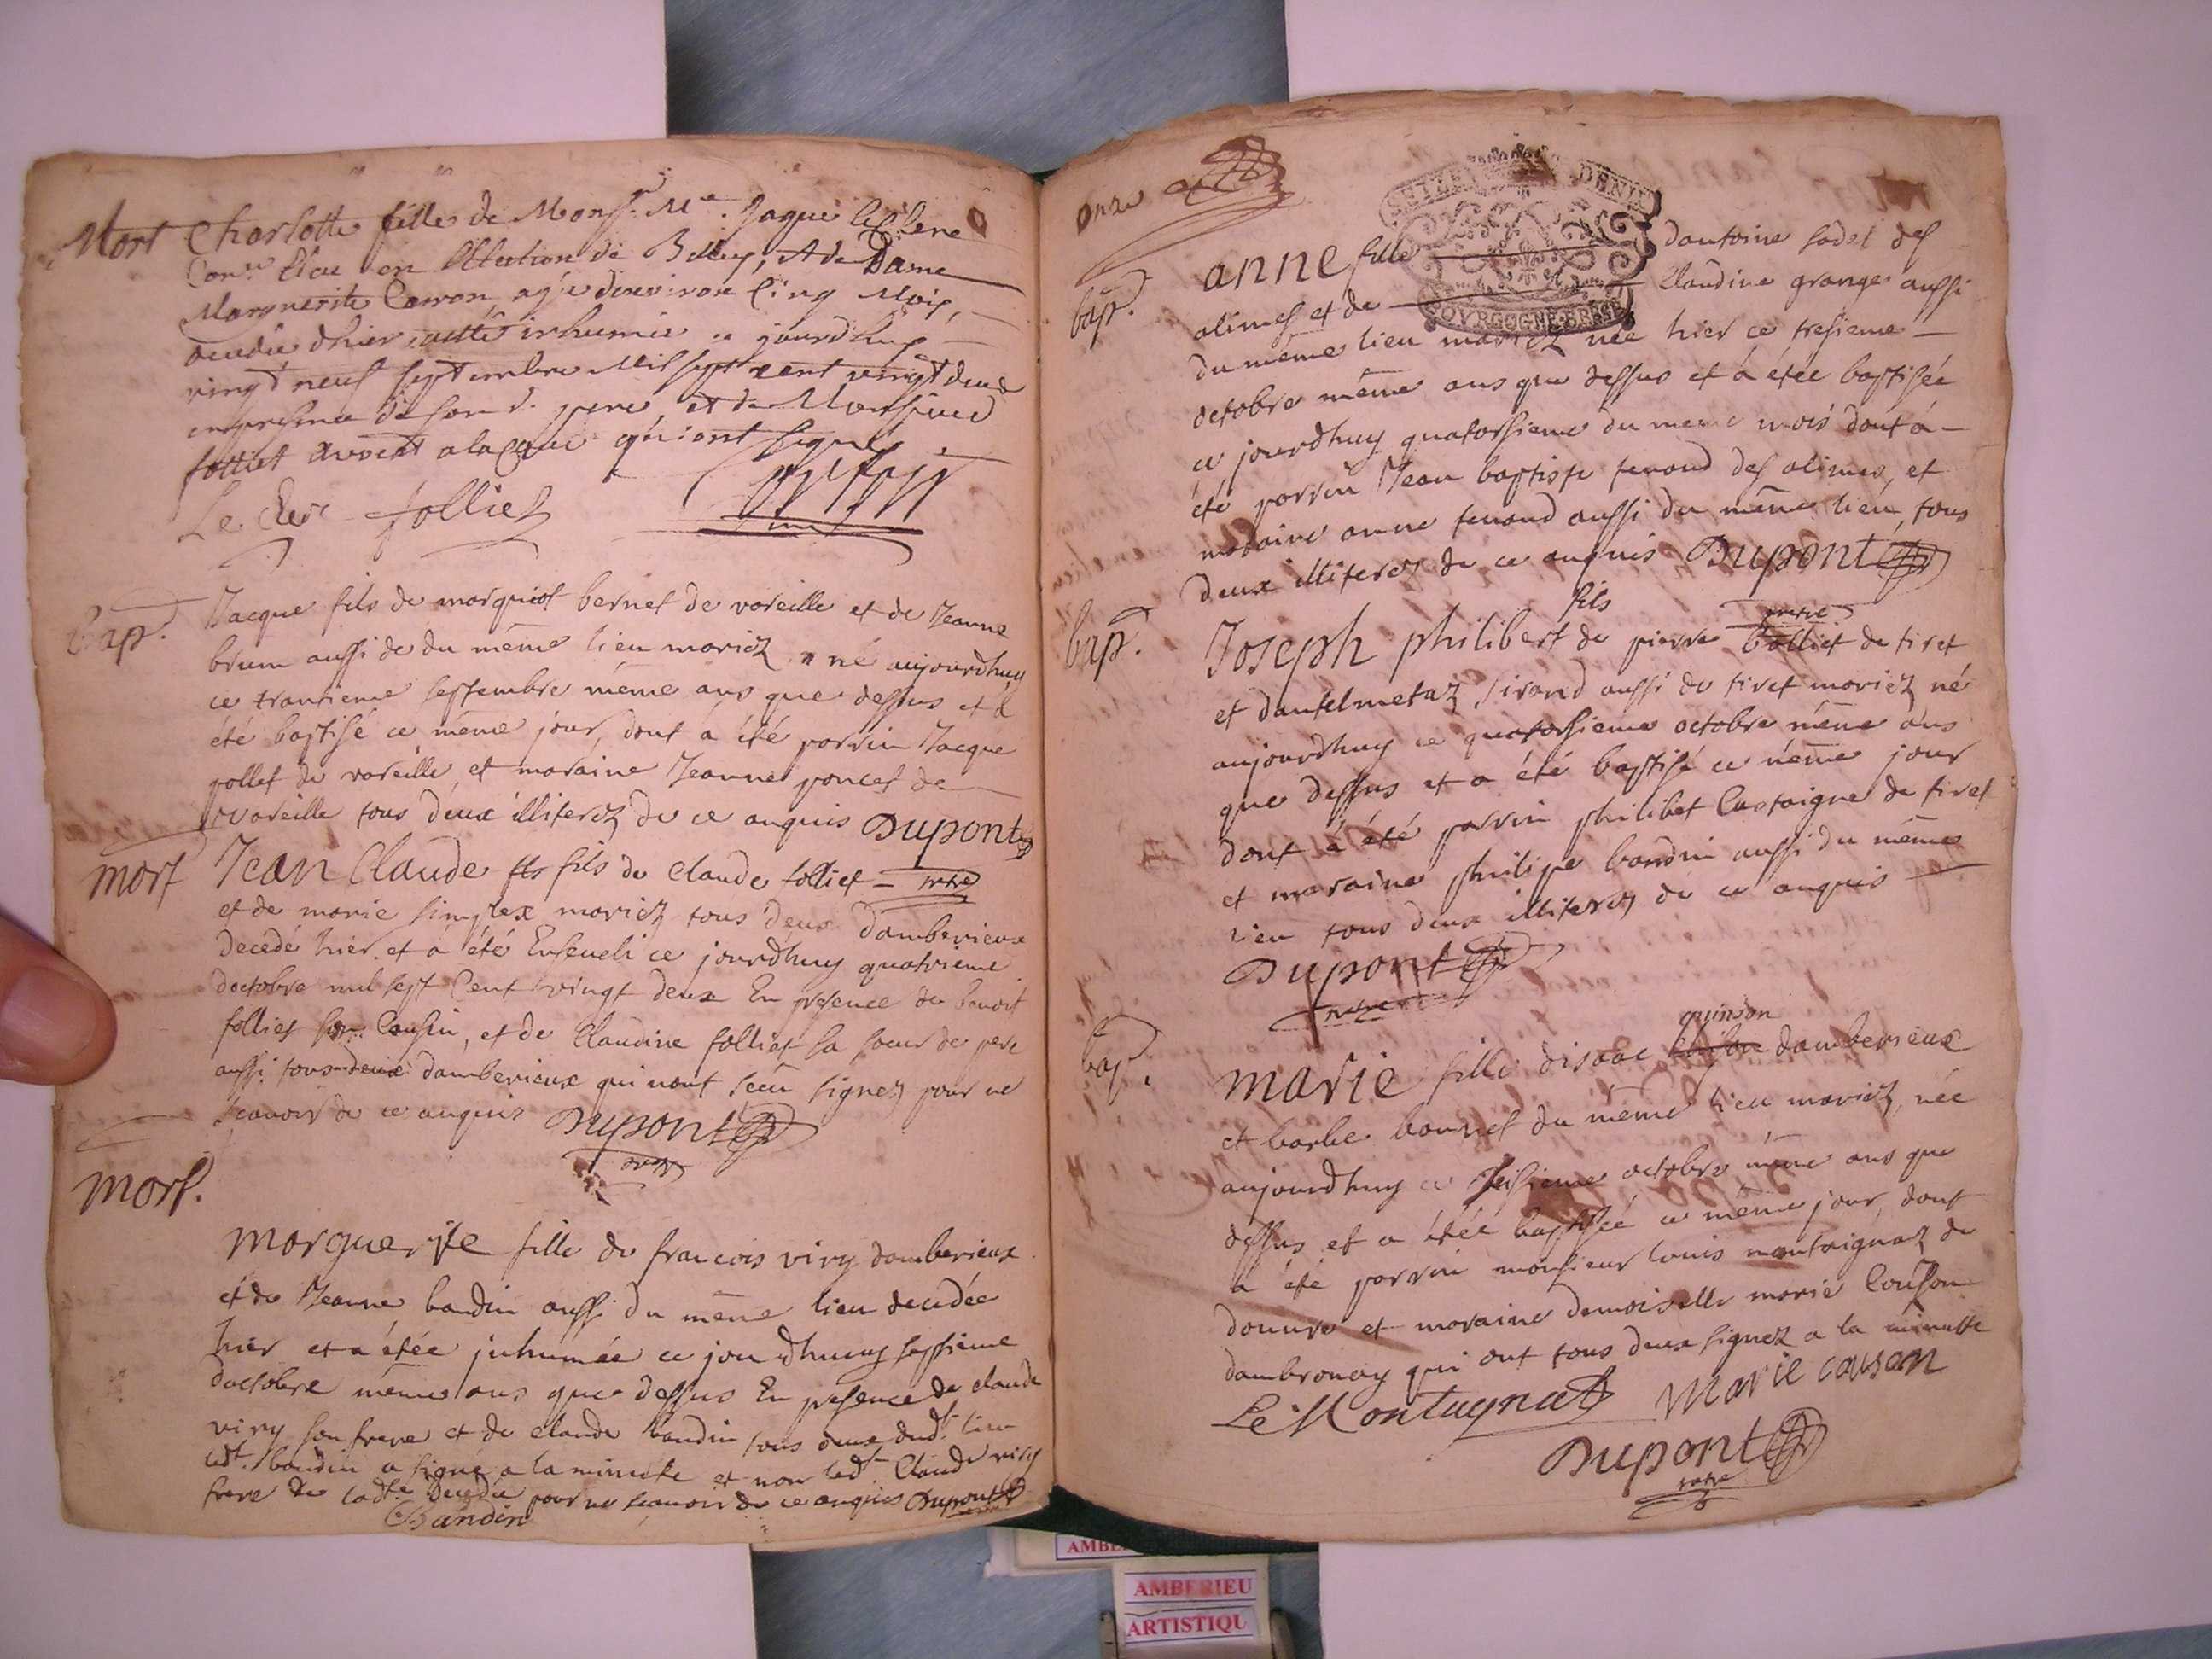 Mort Charlotte fille de Mons.r M.e Jaque
Con.er en l'Election de , et de Dame
Marguerite Carron, agée denviron Cinq Mois,
decedée dhier, aesté inhumée ce jourdhuy
vingt neuf septembre Mil sept cent vingt deux
en presence de son d. pere, et de Monsieur
folliet avocat ala Cour qui ont signé.
Le Clerc folliet
bap. Jacque fils de morguiot bernet de voreille et de Jeanne
brum aussi de du même lieu mariez né aujourdhuy
ce trantieme septembre même ans que dessus et á
été baptisé ce même jour, dont á été parrin Jacque
pollet de voreille, et maraine Jeanne poncet de
voreille tous deux illiterez de ce anquis Dupont
mort Jean Claude fils de Claude folliet
et de marie simplex mariez tous deux damberieux
Decedé hier et á été Enseveli ce jourdhuy quatrieme
doctobre mil sept Cent vingt deux En presence de benoit
folliet son Cousin, et de Claudine folliet sa soeur de pere
aussi tous deux damberieux qui nont sceu signez pour ne
scauoir de ce anquis Dupont
mort.
morguerite fille de francois viry damberieux
et de Jeanne baudin aussi du même lieu decedée
hier et a étée inhumée ce jourdhuy septieme
doctobre même ans que dessus En presence de claude
viry son frere et de claude baudin tous deux dud.t lieu
led.t baudin a signé a la minutte et non led.t Claude viry
frere de lad.te decedée pour ne scauoir de ce anquis Dupont
Baudin
onze
SEIZE DENIE
BOVRGOGNE BRESSE
bap. anne fille dantoine sadet des
alimes et de Claudine grange aussi
du même lieu mariez née hier ce tresieme
octobre même ans que dessus et á étée baptisée
ce jourdhuy quatorsieme du meme mois dont á
été parrin Jean baptiste tenand des alimes, et
maraine anne tenand aussi du même lieu, tous
deux illiterez de ce anquis Dupont
fils
bap. Joseph philibert de pierre bolliet de tiret
et dantelmetaz sirand aussi de tiret mariez né
aujourdhuy ce quatorsieme octobre même ans
que dessus et a été baptisé ce même jour
dont á été parrin philibet Castaigne de tiret
et maraine philipe baudin aussi du même
lieu tous deux illiterez de ce anquis
Dupont
quinson
bap. marie fille disaac damberieux
et barbe bonnet du même lieu mariez, née
aujourdhuy ce seisieme octobre même ans que
dessus et a étée baptisée ce même jour, dont
a été parrin monsieur louis montaignaz de
douure et maraine demoiselle marie Couson
dambronay qui ont tous deux signez a la minutte
Le Montagnat Marie couson
Dupont
AMBERIEU
ARTISTIQU